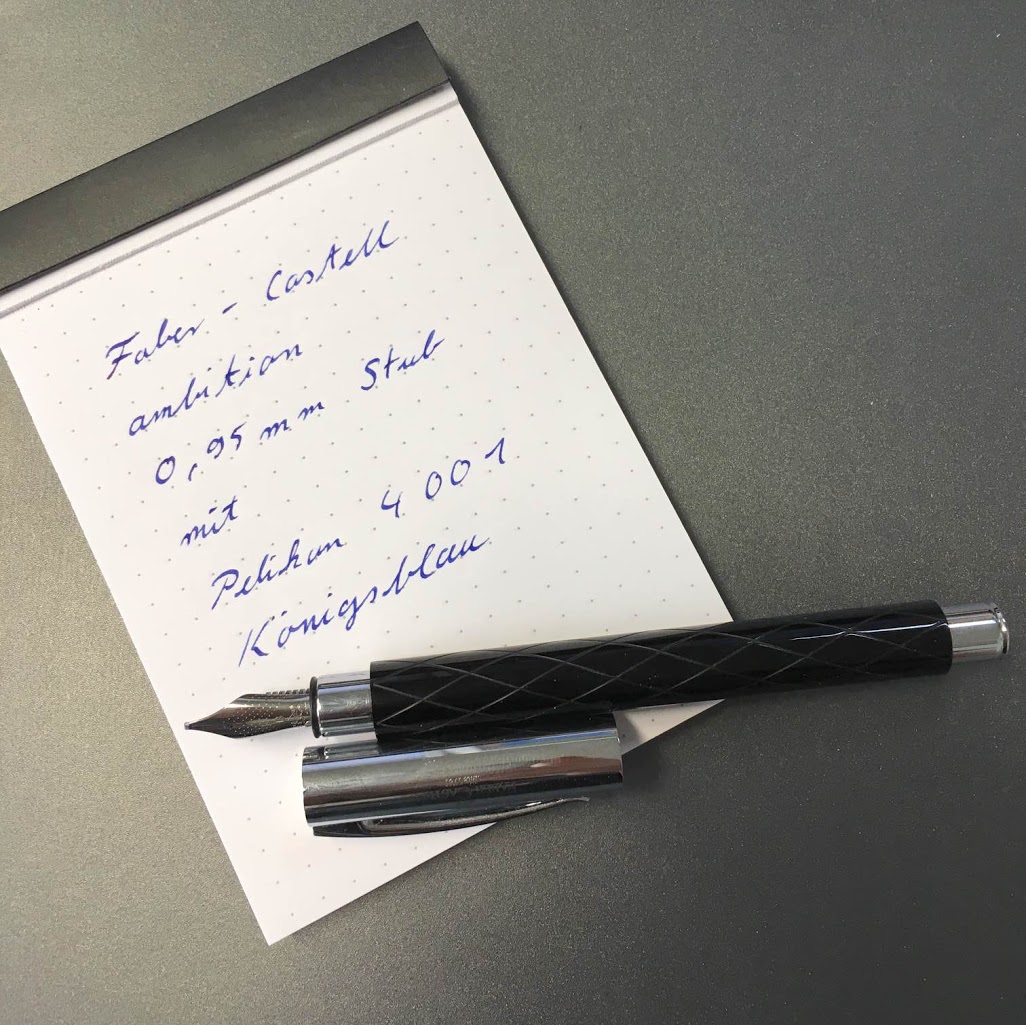 Faber - Castell
ambition
0,95 mm Stub
mit
Pelikan 4001
Königsblau